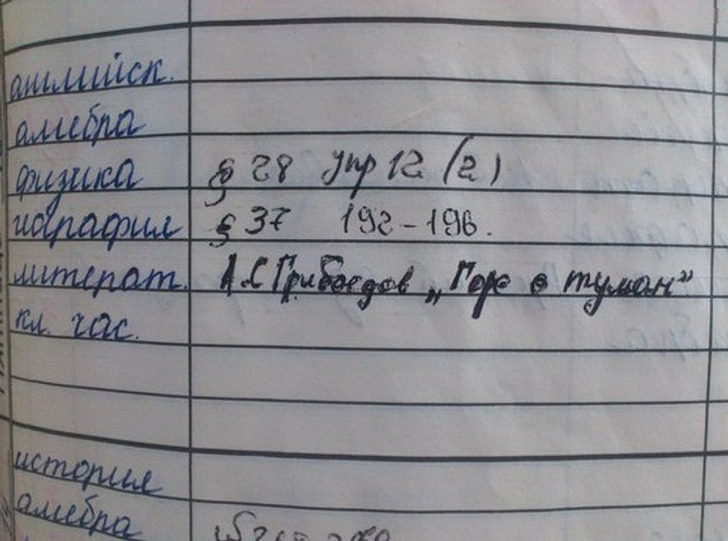 английск.
алгебра
физика § 28 упр 12 (2)
география § 37 192-196.
литерат. А.С Грибоедов „Горе в туман"
кл. час.
история
алгебра